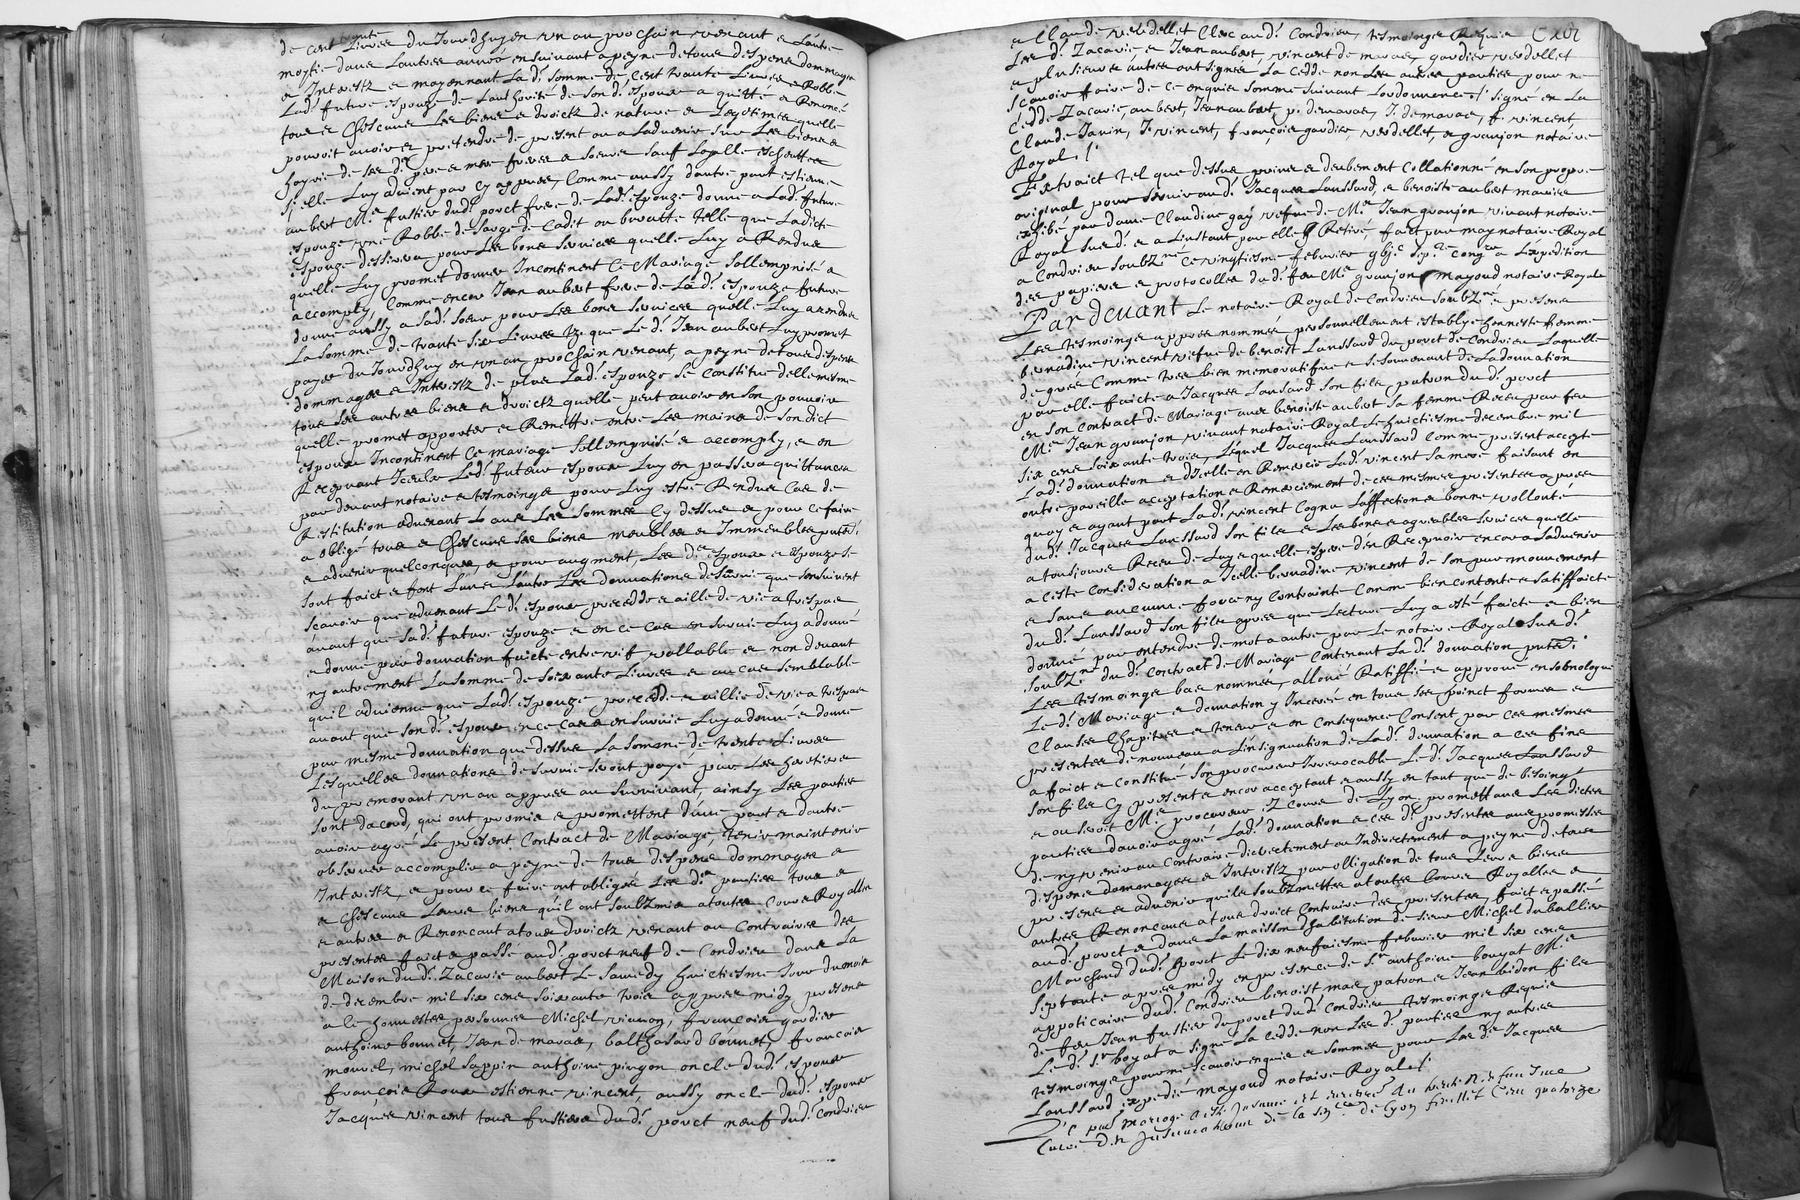 de cent trante Livres du Jourdhuy en un an prochain venant et Lautre
moytie dans Lautres année ensuivant a peyne de tous despens dommages
et Interestz et moyennant La d. somme de Cent trante Livres et Robbe
Lad. future espouze de Lauthorité de son d. espoux a quitté et Renoncé
tous et Chescuns ses biens et droictz de nature et Legitimes quelle
pouvoit avoir et pretendre de present ou a Ladvenir sur Les biens et
hoyrie de ses d. pere et mere freres et soeurs sauf Loyalle escheutte
si elle Luy advient par Cy appres, Comme aussy dautre part estienne
aubert Me fustier dud. port frere de Lad. espouze donne a Lad. future
espouze une Robbe de sarge de Cadit ou buratte telle que Ladicte
espouze dessirera pour Les bons services quelle Luy a Rendus
quelle Luy promet donner Incontinent Ce Mariage sollempnisé et
accomply, Comme encor Jean aubert frere de La d. espouze future
donne aussy a sad. soeur pour Les bons services quelle Luy a rendus
La somme de trante six Livres tz que Le d. Jean aubert Luy promet
payer du Jourdhuy en un an prochain venant, a peyne de tous despens
dommages et Interestz de plus Lad. espouze se Constitue dellemesme
tous ses autres biens et droictz quelle peut avoir en son pouvoir
quelle promet apporter et Remettre entre Les mains de son dict
espoux Incontinent Ce mariage sollempnisé et accomply, et en
Recepvant Iceulx Led. futeur espoux Luy en passera quittance
par devant notaire et tesmoings pour Luy estre Rendues Cas de
Restitution advenant Lavec Les sommes Cy dessus et pour ce faire
a obligé tous et Chescuns ses biens meubles et Immeubles putz
et advenir quelconques, et pour augment, Les d. espoux et espouze se
sont faict et font Lun et Lautre Les donnations de survie que sensuivent
scavoir que advenant Le d. espoux precedde et aille de vie a trespas
avant que sad. future espouze et en ce Cas en survie Luy a donné
et donne par donnation faicte entre vif vallable et non devant
ny autrement La somme de soixante Livres et au cas semblable
quil advienne que Lad. espouze precedde et aillie de vie a trespas
avant que son d. espoux en ce Cas en survie Luy a donné et donne
par mesme donnation que dessus La somme de trente Livres
Lesquelles donnations de survie seront payé par Les heretiers
du premorant un an appres au survivant, ainsy Les parties
sont dacord, qui ont promis et promettent dune part et dautre
avoir agré Le present Contract de Mariage, tenir maintenir
observer accomplir a peyne de tous despens dommages et
Interestz et pour ce faire ont obligés Les d. parties tous et
et Chescuns Leurs biens quil ont soubzmis a toutes Cours Royalles
et autres et Renoncant a tous droictz venant au Contraires des
presentes faict et passé aud. port neuf de Condrieu dans La
Maison dud. Zacarie aubert Le samedy huictiesme Jour du mois
de decembre mil six cens soixante trois appres midy presens
a le honnestes personnes Michel viannon, francois gardier
anthoine bonnet, Jean de maras, balthasard bonnet, francois
mourel, michel sappin anthoine pingon oncle dud. espoux
francois Roux estienne vincent, aussy oncle dud. espoux
Jacques vincent tous fustiers dud. port neuf dud. Condrieu
et Claude verdellet Clerc aud. Condrieu tesmoings Requis
Les d. Zacarie et Jean aubert, vincent de maras, gardier verdellet
et plusieurs autres ont signés La cedde non Les autres parties pour ne
scavoir faire de Ce enquis somme suivant Lordonnence signé en La
Cedde Zacarie aubert, Jean aubert, p. demaras, J. demaras, f. vincent
Claude Janin, J. vincent, francois gardier, verdellet, et granjon notaire
Royal
Extraict tel que dessus prins et deubement Collationné en son propre
original pour servir aud. Jacques Lanssard, et benoiste aubert mariés
exhibé par dame Claudine gay vefve de Me Jean granjon vivant notaire
Royal susd. et a Linstant par elle Retiré, faict par moy notaire Royal
a Condrieu soubzné ce vingtiesme febvrier
des papiers et protocolles dud. feu Me granjon mayoud notaire Royal
Pardevant Le notaire Royal de Condrieu soubzné et presens
Les tesmoings appres nommés personnellement establye honneste femme
bernardine vincent vefve de benoist Lanssard du port de Condrieu Laquelle
de gré Comme tres bien memorative et se souvenant de La donnation
par elle faicte a Jacques Lanssard son fils, patron du d. port
en son Contract de Mariage avec benoiste aubert sa femme Receu par feu
Me Jean granjon vivant notaire Royal Le huictiesme decembre mil
six cens soixante trois, Lequel Jacques Lanssard Comme present accepte
Lad. donnation et dicelle en Remercie Lad. vincent sa mere faisant en
outre pareille acceptation et Remerciement de ces mesmes presentes appres
quoy et ayant part Lad. vincent Cognu Laffection et bonne vollonté
dud. Jacques Lanssard son fils et Les bons et agreables services quelle
a tousjours Receu de Luy et quelle espere den Recepvoir encor a Ladvenir
a Ceste Consideration a Icelle bernardine vincent de son pur mouvement
et sans aucune force ny Contrainte Comme bien contente et satisffaicte
dud. Lanssard son fils appres que Lecture Luy a esté faicte et bien
donné par entendre de mot a autre par Le notaire Royal susd.
soubzné dud. Contract de Mariage Contenant La d. donnation putz
Les tesmoings bas nommés, alloué Ratiffié et approuvé en sobnologue
Le d. Mariage et donnation y Inserés en tous ses poinct formes et
Clauses Chapitres et teneur et en Consequence Consent par ces mesmes
presentes de nouveau a Linsignuation de La d. donnation a ces fins
a faict et Constitué son procureur Irrevocable Le d. Jacques Lanssard
son fils Cy present et encor acceptant et aussy en tant que de besoing
et ou seroit Me procureur ez Cours de Lyon promettans Les dictes
parties davoir agré Lad. donnation et ces d. presentes avec promisses
de ny venir au Contraire dicrectement ou Indirectement a peyne de tous
despens dommages et Interestz par obligation de tous Leurs biens
presens et advenir quils soubzmettes a toutes Cours Royalles et
autres Renoncans a tous droict Contraire des presentes, faict et passé
aud. port et dans La maisson dhabitation de sieur Michel du ballier
Marchand dud. port Le dix neufviesme febvrier mil six cens
septante appres midy en presence de Sr anthoine boyat Me
appoticaire dud. Condrieu benoist mas patron et Jean bidon fils
de feu Jean fustier du port dud. Condrieu tesmoings Requis
Le d. Sr boyat a signé La cedde non Les d. parties ny autres
tesmoings pour ne scavoir enquis et sommés pour Les d. Jacques
Lanssard expedié mayoud notaire Royal
Le put mariage a esté Insinué et enregré au
Cours de la sen. de Lyon feuillet Cent quatorze